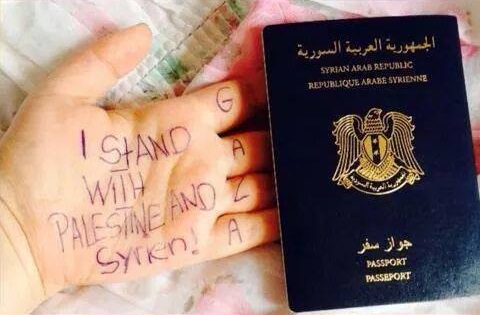 I StAND
WITH
PALESTINE AND
Syrien!
G
A
Z
A
الجمهورية العربية السورية
SYRIAN ARAB REPUBLIC
REPUBLIQUE ARABE SYRIENNE
الجمهورية العربية السورية
جواز سفر
PASSPORT
PASSEPORT